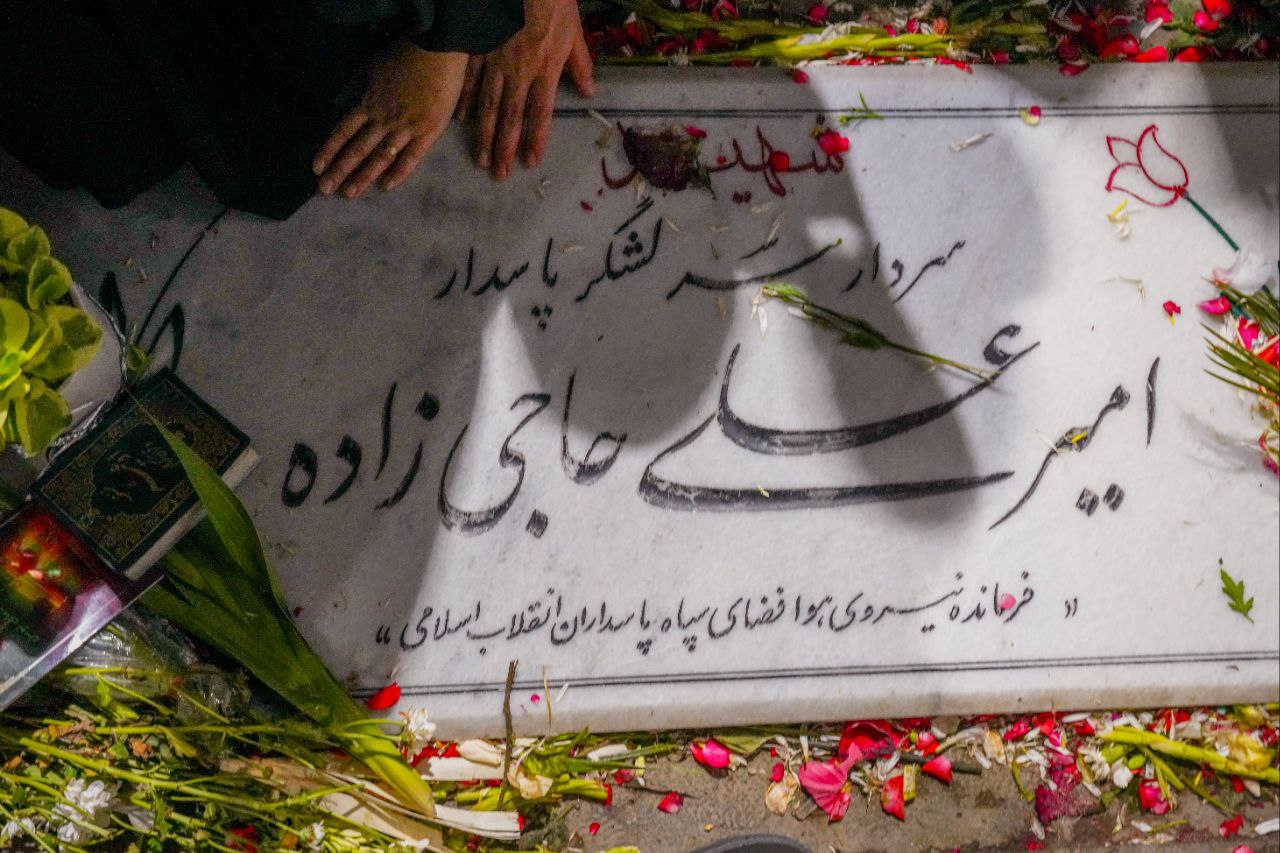 شهید
سردار سرلشگر پاسدار
امیرعلی حاجی زاده
" فرمانده نیروی هوا فضای سپاه پاسداران انقلاب اسلامی "